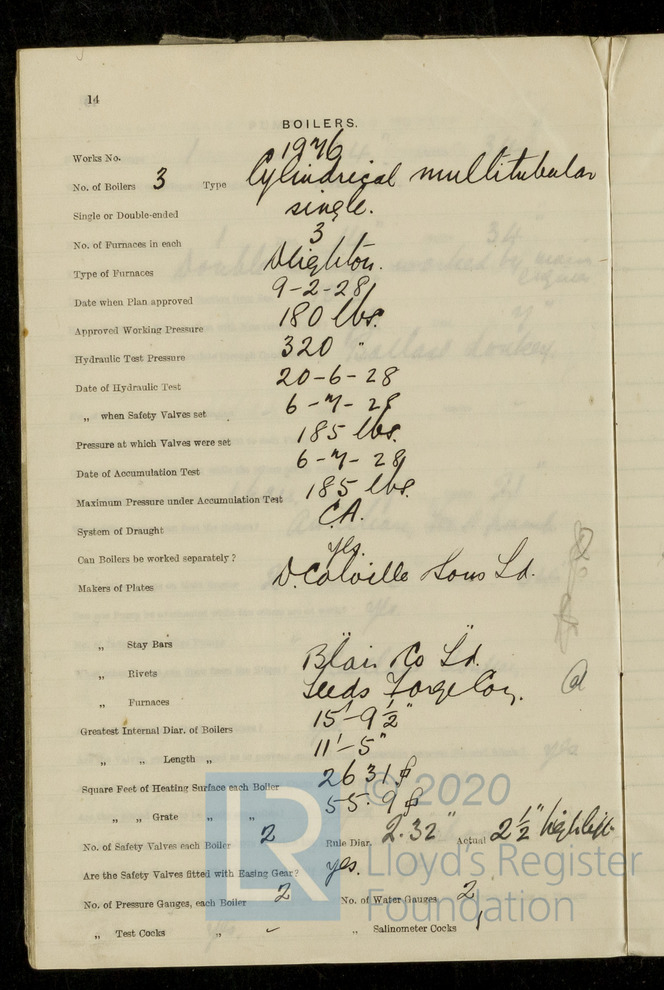 14
BOILERS.
Works No. 1976
No. of Boilers 3 Type Cylindrical multitubular
Single or Double-ended single.
No. of Furnaces in each 3
Type of Furnaces Deighton.
Date when Plan approved 9-2-28
Approved Working Pressure 180 lbs.
Hydraulic Test Pressure 320 "
Date of Hydraulic Test 20-6-28
„ when Safety Valves set 6-7-28
Pressure at which Valves were set 185 lbs.
Date of Accumulation Test 6-7-28
Maximum Pressure under Accumulation Test 185 lbs.
System of Draught C.A.
Can Boilers be worked separately? yes.
Makers of Plates D. Colville Sons Ld.
„ Stay Bars "
„ Rivets Blair Co Ld.
„ Furnaces Leeds Forge Coy.
Greatest Internal Diar. of Boilers 15'-9½"
„ „ Length „ 11'-5"
Square Feet of Heating Surface each Boiler 2631
„ „ Grate „ „ 55.9
No. of Safety Valves each Boiler 2 Rule Diar. 2.32" Actual 2½" high lift.
Are the Safety Valves fitted with Easing Gear? yes.
No. of Pressure Gauges, each Boiler 2 No. of Water Gauges 2
„ Test Cocks „ ✓ „ Salinometer Cocks 1
© 2020
LR
Lloyd's Register
Foundation